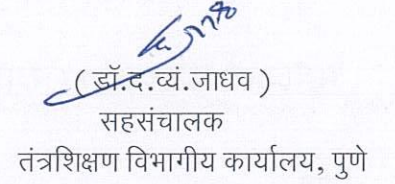 ( डॉ.द.व्यं.जाधव )
सहसंचालक
तंत्रशिक्षण विभागीय कार्यालय, पुणे